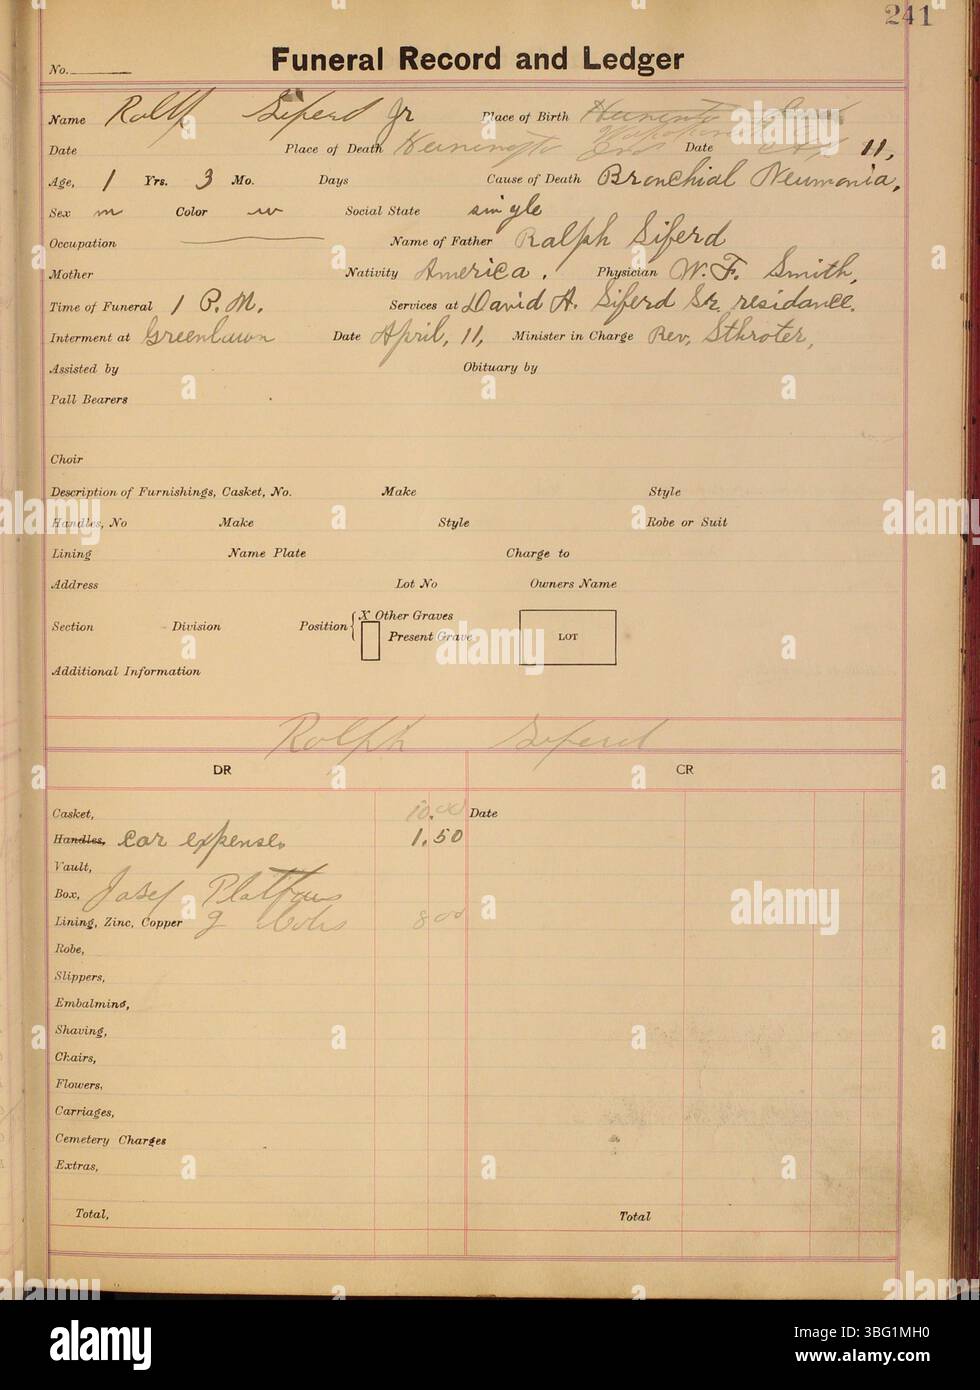 241
No. Funeral Record and Ledger
Name Rolff Siferd Jr Place of Birth
Date Place of Death Date 11,
Age, 1 Yrs. 3 Mo. Days Cause of Death Bronchial Neumonia,
Sex m Color w Social State single
Occupation Name of Father Ralph Siferd
Mother Nativity America. Physician W. F. Smith,
Time of Funeral 1 P.M. Services at David A. Siferd Sr. residance.
Interment at Greenlawn Date April, 11, Minister in Charge Rev, Sthroter,
Assisted by Obituary by
Pall Bearers
Choir
Description of Furnishings, Casket, No. Make Style
Handles, No Make Style Robe or Suit
Lining Name Plate Charge to
Address Lot No Owners Name
Section Division Position X Other Graves
Present Grave LOT
Additional Information
Rolph Siferd
DR CR
Casket, 10.00 Date
Handles, car expense. 1.50
Vault,
Box, Josef
Lining, Zinc, Copper 8 00
Robe,
Slippers,
Embalming,
Shaving,
Chairs,
Flowers,
Carriages,
Cemetery Charges
Extras,
Total, Total
alamy
Image ID: 3BG1MH0
www.alamy.com